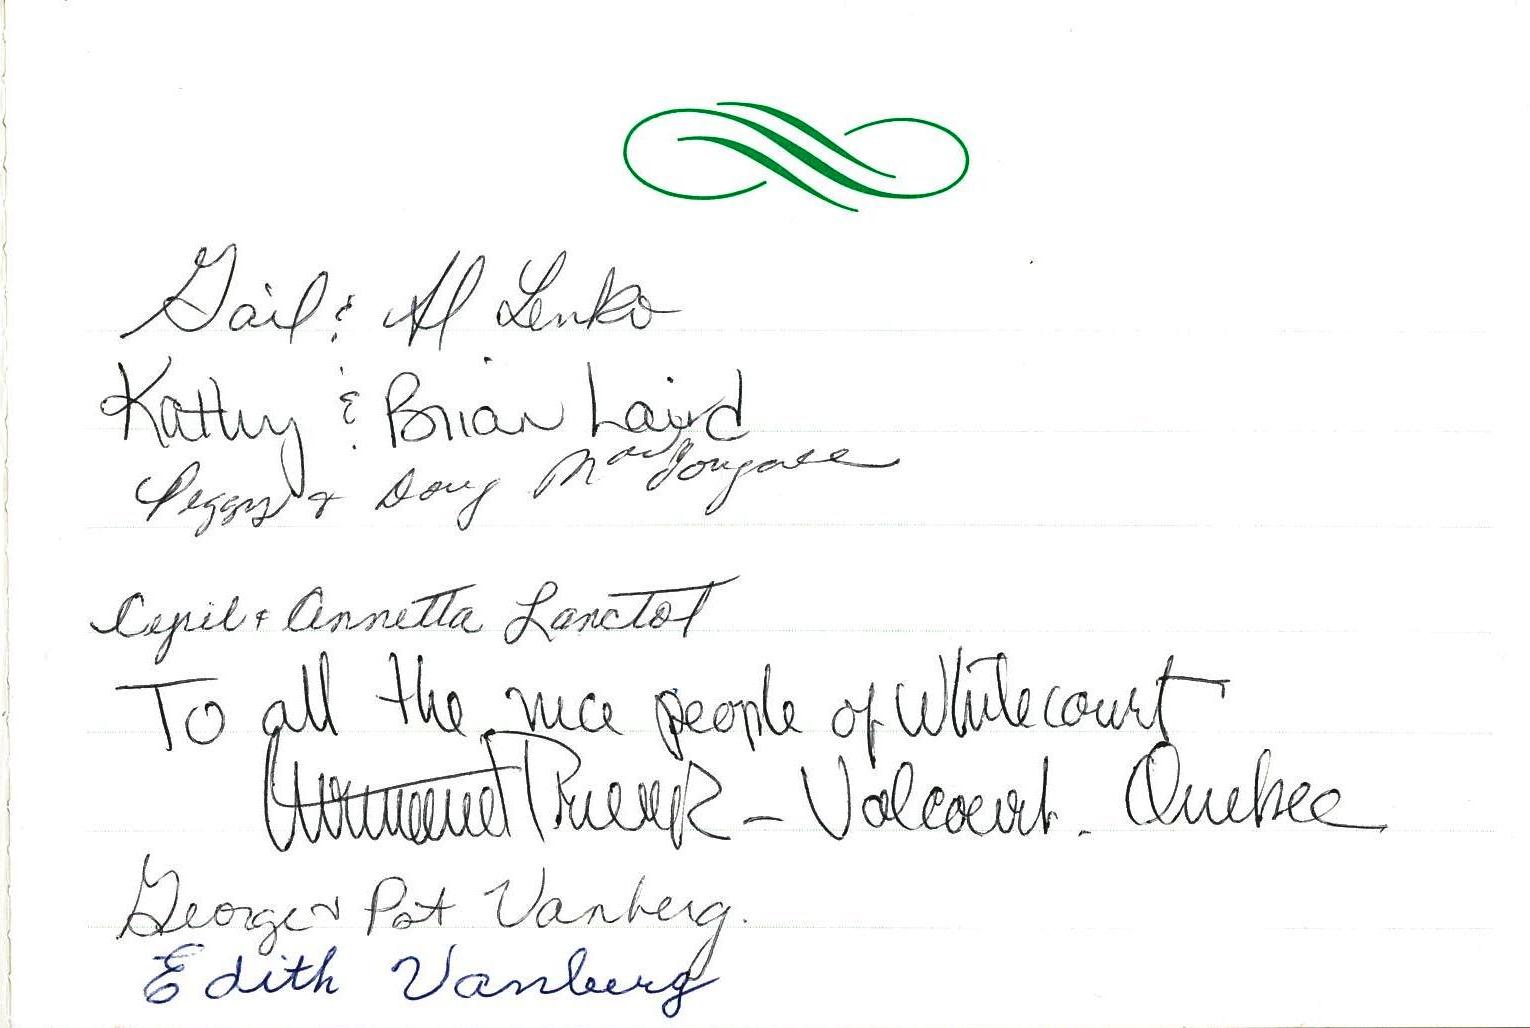 Gail & Al Lenko
Kathy & Brian Laird
Peggy & Doug MacDougall
Cyril & Annetta Lanctot
To all the nice people of Whitecourt
- Valcourt. Quebec
George & Pat Vanberg.
Edith Vanberg